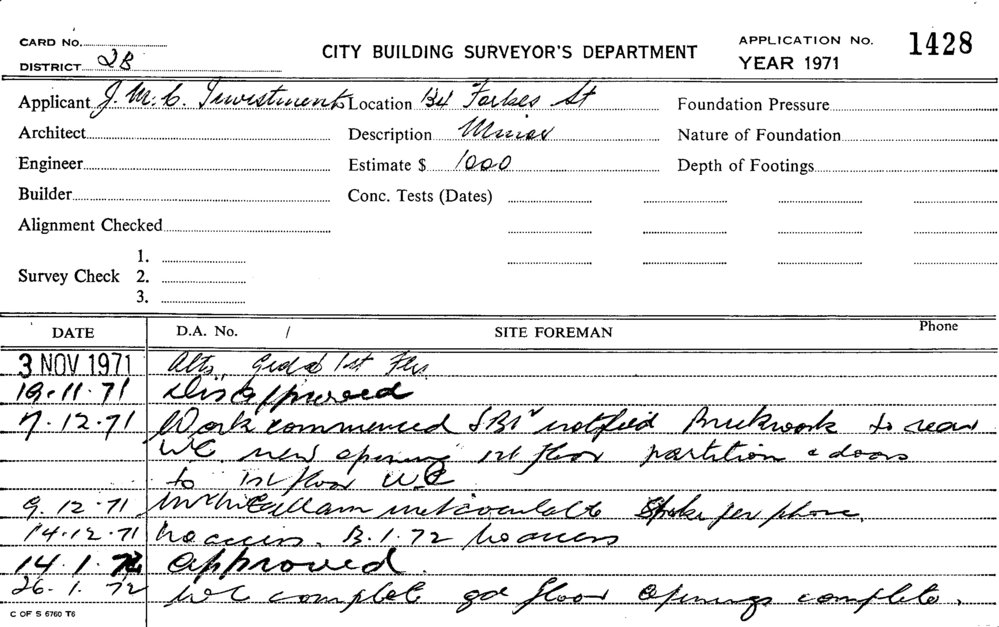 CARD No.
DISTRICT 2B
CITY BUILDING SURVEYOR'S DEPARTMENT
APPLICATION No. 1428
YEAR 1971
Applicant J. M. C. Investments Location 134 Forbes St Foundation Pressure
Architect Description Minor Nature of Foundation
Engineer Estimate $ 1000 Depth of Footings
Builder Conc. Tests (Dates)
Alignment Checked
Survey Check 1.
2.
3.
DATE D.A. No. / SITE FOREMAN Phone
3 NOV 1971 Alts. Grd & 1st Flrs.
19.11.71 Disapproved
7.12.71 Work commenced notified Brickwork to rear
WC new opening 1st floor partition & doors
to 1st floor WC
9.12.71 Spoke per phone.
14.12.71 No access. 1.72 No access
14.1.72 Approved.
26.1.72 WC complete gd floor openings complete.
C OF S 6760 T6